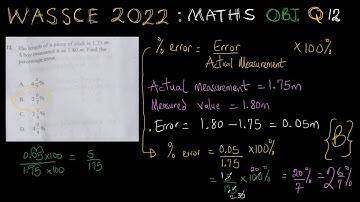 WASSCE 2022 : MATHS OBJ Q 12
12. The length of a piece of stick is 1.75 m.
A boy measured it as 1.80 m. Find the
percentage error.
A. 4 %
B. 2 %
C. 2 %
D. 4 %
% error = Error / Actual Measurement × 100%
Actual measurement = 1.75m
Measured value = 1.80m
Error = 1.80 - 1.75 = 0.05m
% error = 0.05 / 1.75 × 100%
= 20/7 % = 2 6/7 %
{B}
0.05 × 100 / 1.75 × 100 = 5 / 175